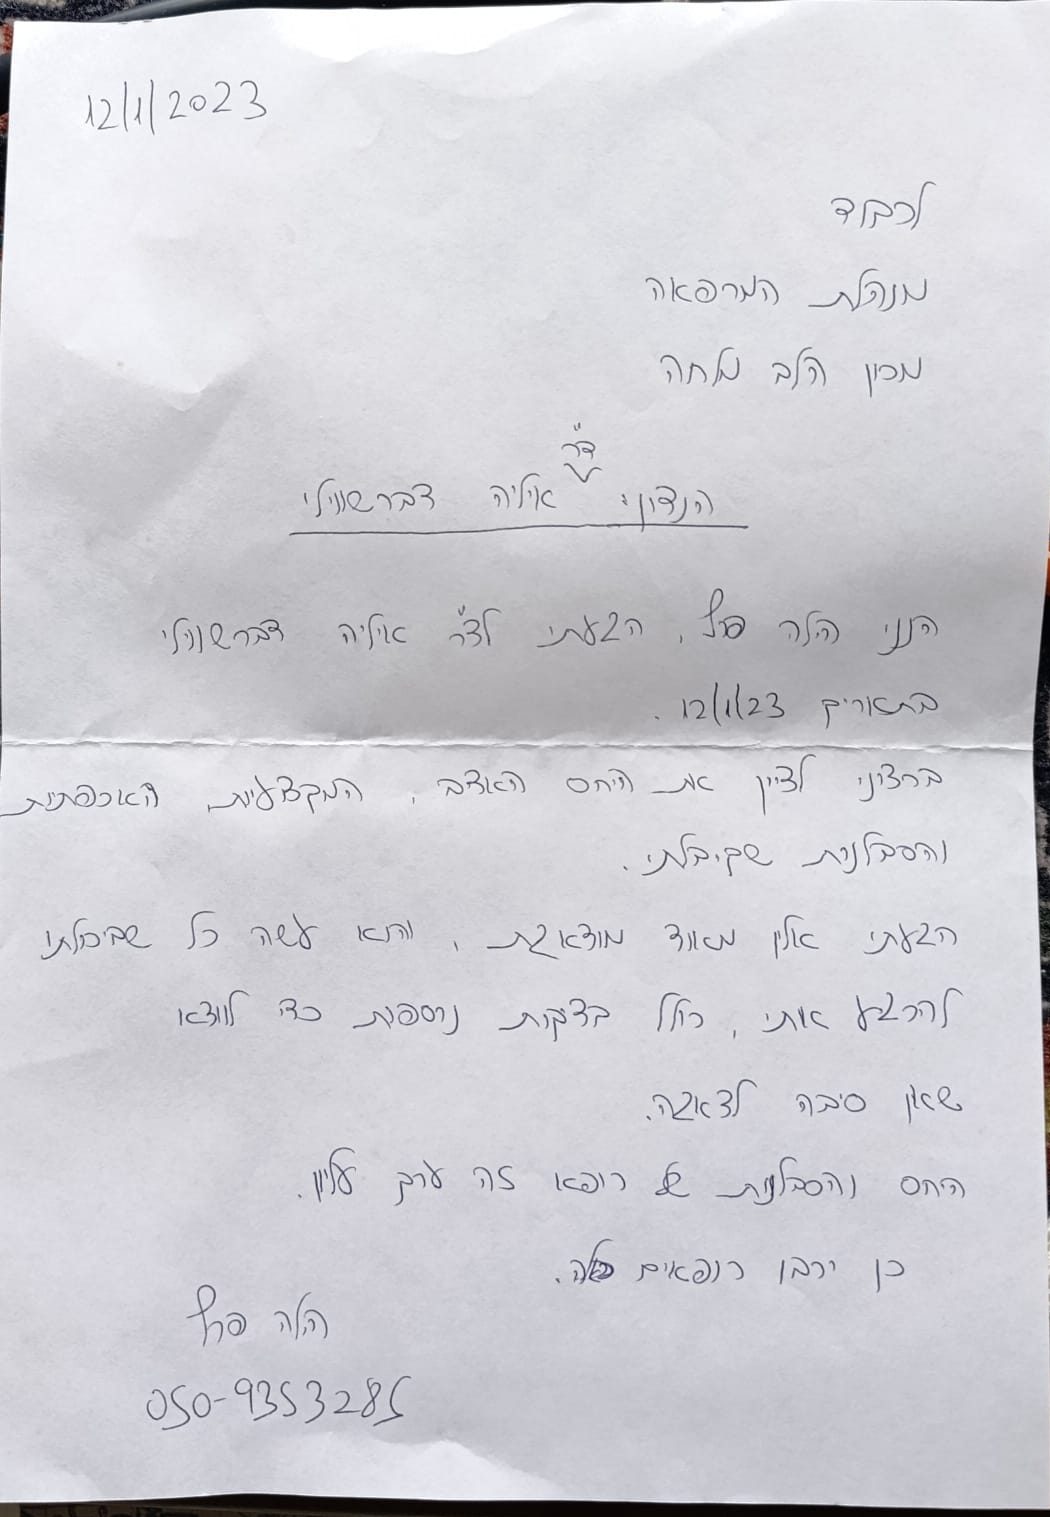 12/1/2023
לכבוד
מנהלת המרפאה
מכון הלב מלחה
הנדון: ד"ר איליה דברשווילי
הנני הילה פרץ, הגעתי לד"ר איליה דברשווילי
בתאריך 12/1/23.
ברצוני לציין את היחס האדב, המקצועיות, האכפתיות
והסבלנות שקיבלתי.
הגעתי אליו מאוד מודאגת, והוא עשה כל שביכולתו
להרגיע אותי, כולל בדקות נוספות כדי לוודא
שאין סיבה לדאגה.
היחס והסבלנות של רופא זה ערך עליון.
כן ירבו רופאים כאלה.
הילה פרץ
050-9353285